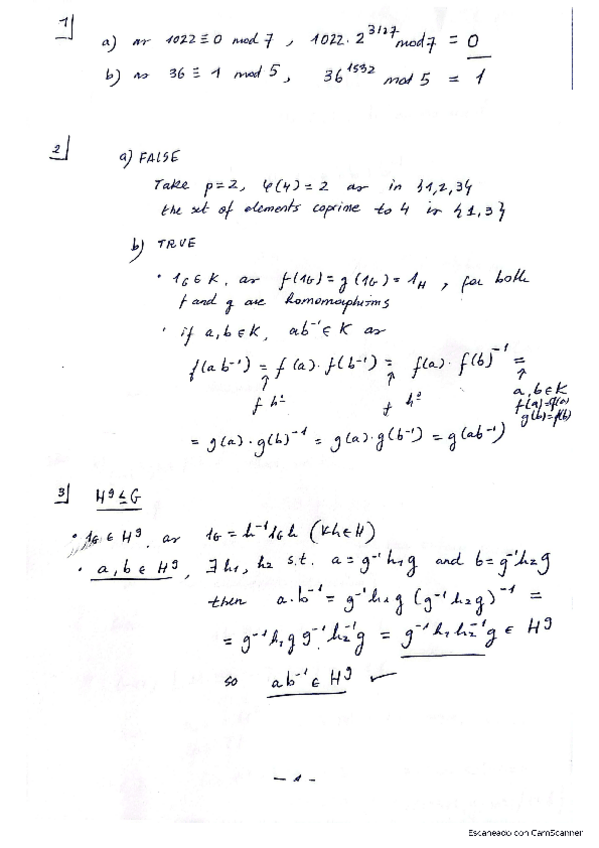 1]
a) as 1022 ≡ 0 mod 7, 1022 · 2^3127 mod 7 = 0
b) as 36 ≡ 1 mod 5, 36^1532 mod 5 = 1
2]
a) FALSE
Take p=2, φ(4)=2 as in {1,2,3}
the set of elements coprime to 4 is {1,3}
b) TRUE
· 1_G ∈ K, as f(1_G) = g(1_G) = 1_H, for both
f and g are homomorphisms
· if a,b ∈ K, ab⁻¹ ∈ K as
f(ab⁻¹) = f(a)·f(b⁻¹) = f(a)·f(b)⁻¹ =
↑ ↑ ↑
f h² f h² a,b ∈ K
f(a)=g(a)
g(b)=f(b)
= g(a)·g(b)⁻¹ = g(a)·g(b⁻¹) = g(ab⁻¹)
3] H^g ≤ G
· 1_G ∈ H^g, as 1_G = h⁻¹1_G h (∀h∈H)
· a,b ∈ H^g, ∃ h₁, h₂ s.t. a = g⁻¹h₁g and b = g⁻¹h₂g
then a·b⁻¹ = g⁻¹h₁g (g⁻¹h₂g)⁻¹ =
= g⁻¹h₁g g⁻¹h₂⁻¹g = g⁻¹h₁h₂⁻¹g ∈ H^g
so ab⁻¹ ∈ H^g ✓
- 1 -
Escaneado con CamScanner